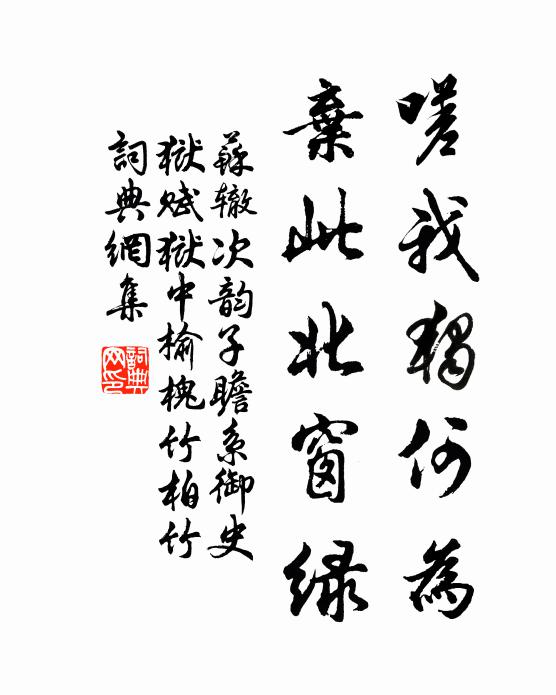 嗟我獨何為
棄此北窗緑
蘇辙次韵子瞻系御史
獄賦獄中榆槐竹柏竹
詞典網集
詞典
网印